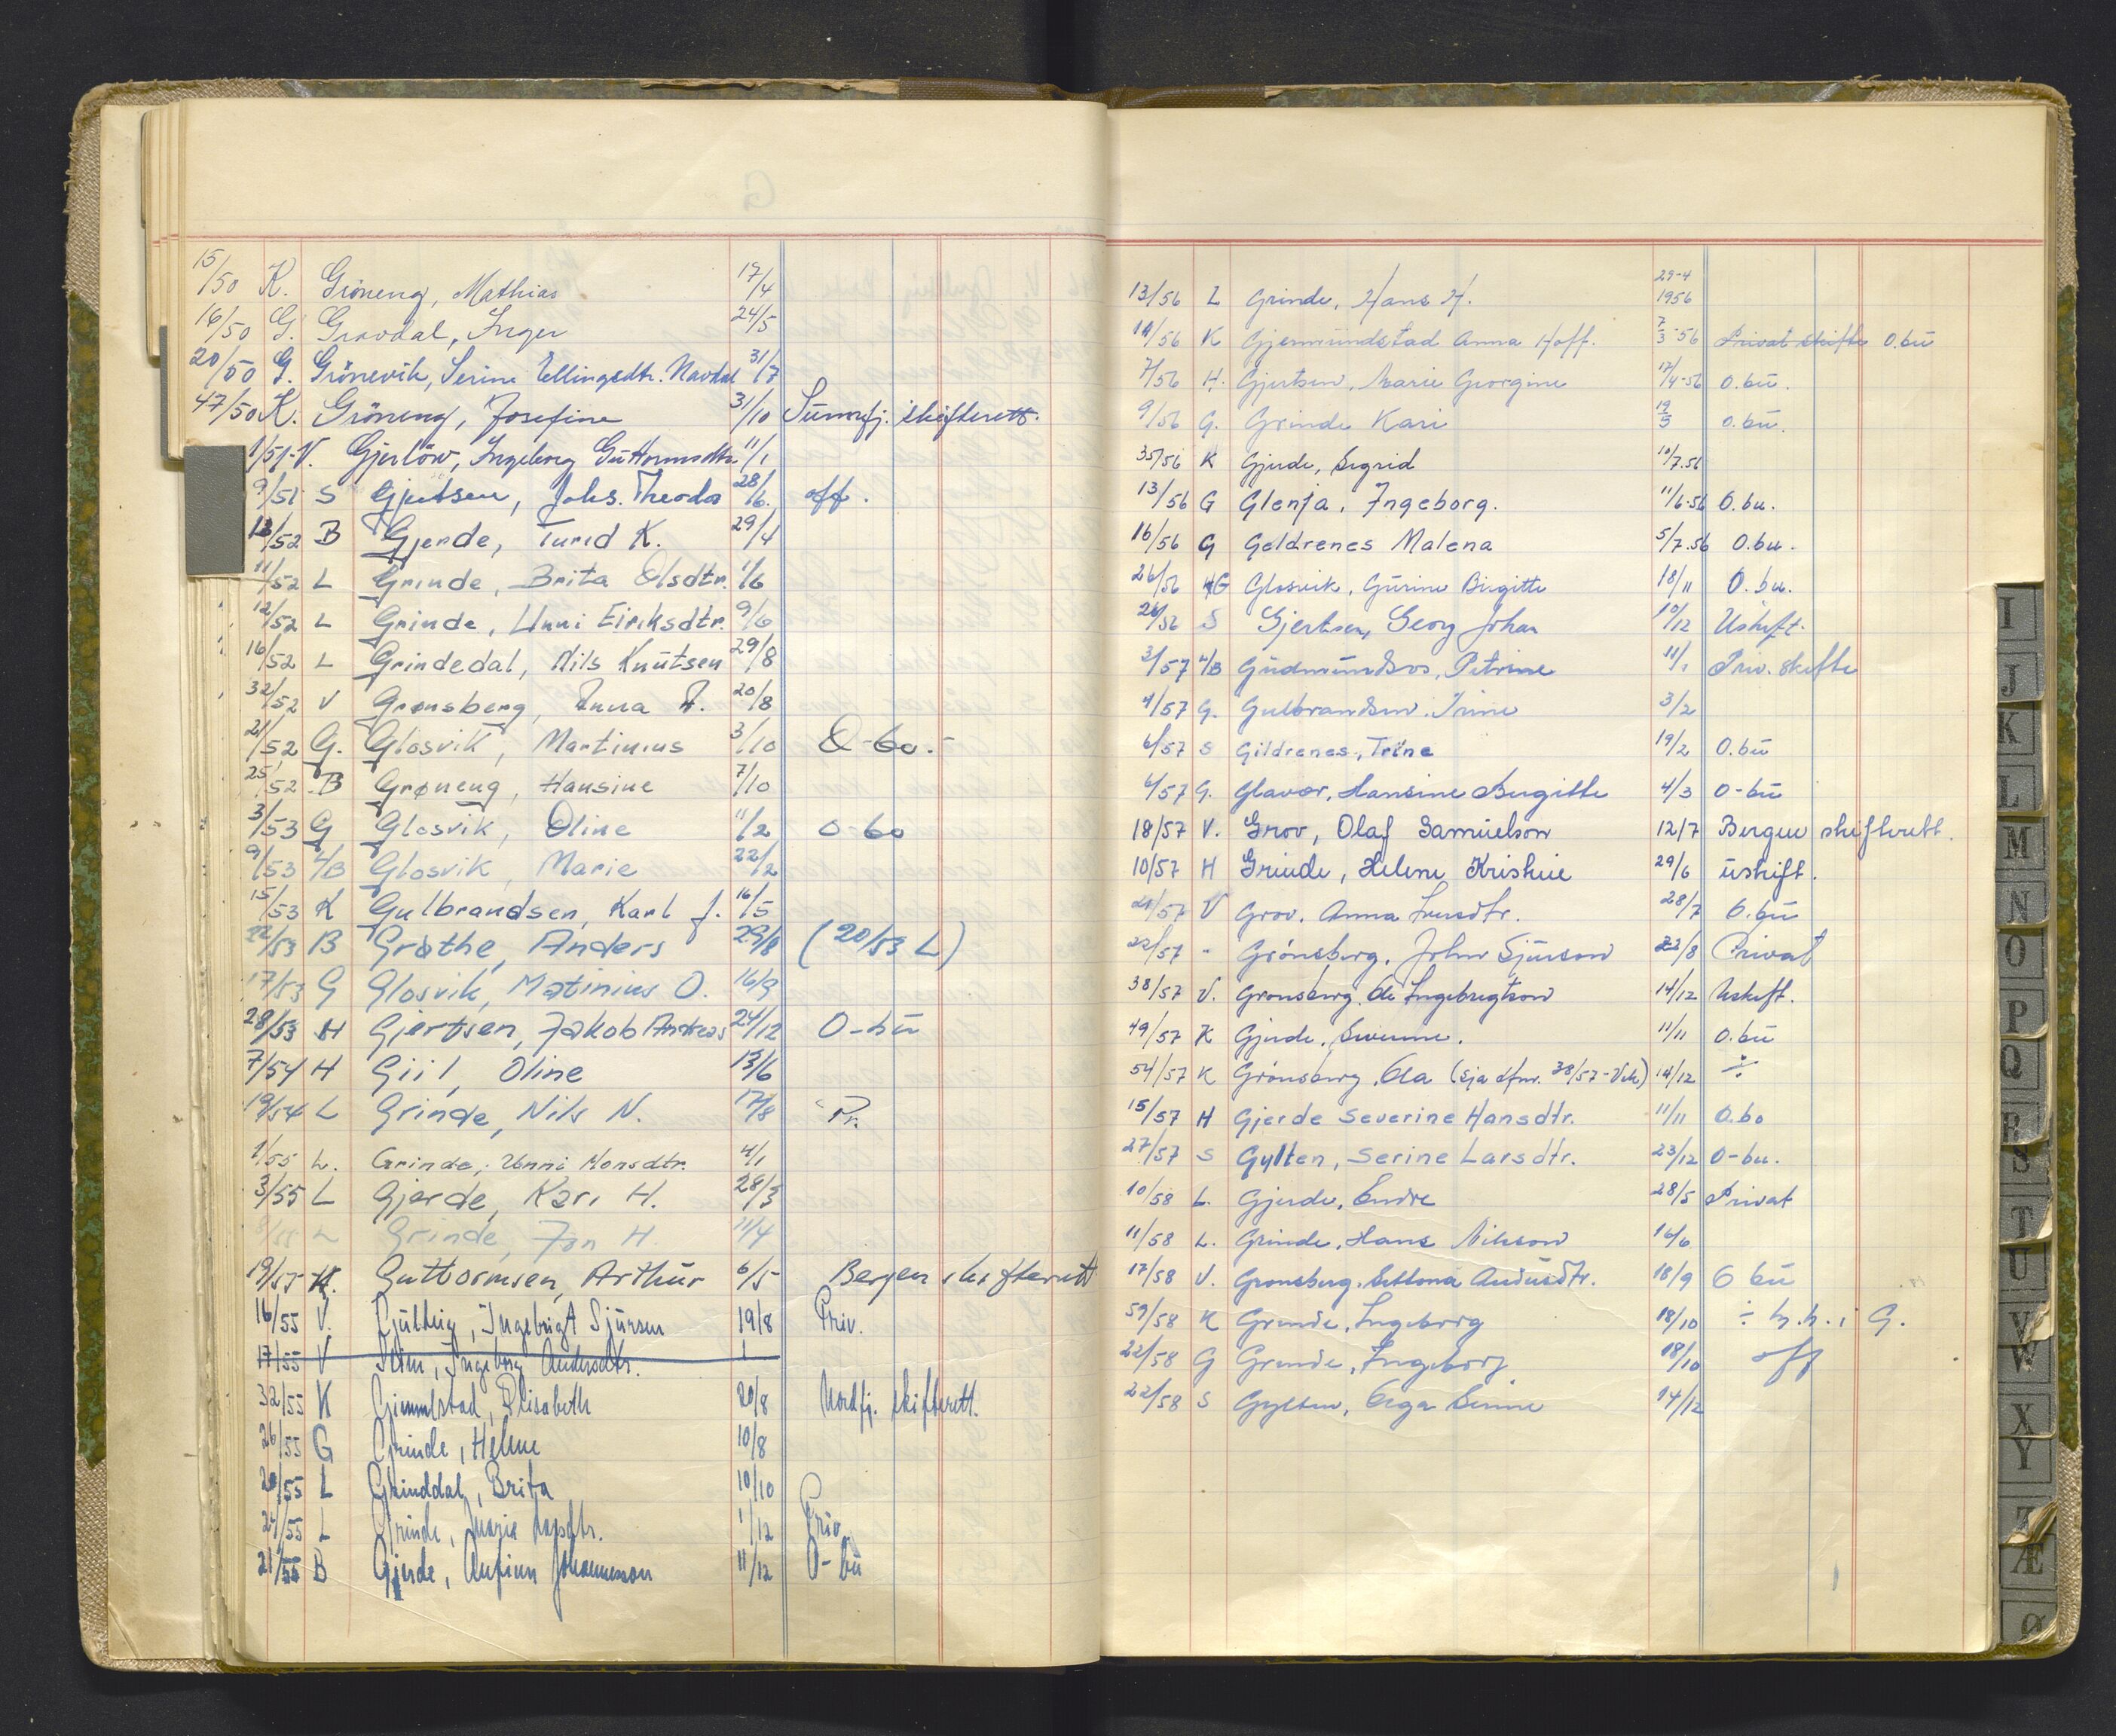 15/50 K. Gröneng, Mathias 17/4
16/50 G. Gravdal, Inger 24/5
20/50 G. Grönevik, Serine Ellingsdtr. Navdal 31/7
47/50 K. Gröneng, Josefine 31/10 Sunnfj. skifterett.
1/51 V. Gjerlöw, Ingeborg Guttormsdtr. 11/1
9/51 S Gjertsen, Johs. Theodor 28/6 off.
13/52 B Gjerde, Turid K. 29/4
11/52 L Grinde, Brita Olsdtr. 1/6
12/52 L Grinde, Unni Eiriksdtr. 9/6
16/52 L Grindedal, Nils Knutsen 29/8
32/52 V Grønsberg, Anna A. 20/8
21/52 G. Glosvik, Martinius 3/10 O-bo.-
25/52 B Grøneng, Hansine 7/10
3/53 G Glosvik, Oline 11/2 O-bo
9/53 H/B Glosvik, Marie 22/2
15/53 K Gulbrandsen, Karl J. 16/5
22/53 B Grøthe, Anders 29/8 (20/53 L)
17/53 G Glosvik, Matinius O. 16/9
28/53 H Gjertsen, Jakob Andreas 24/12 O-bu
7/54 H Giil, Oline 13/6
19/54 L Grinde, Nils N. 17/8 Pr.
1/55 L. Grinde, Unni Monsdtr. 4/1
3/55 L Gjerde, Kari H. 28/3
8/55 L Grinde, Jon H. 11/4
19/55 K. Guttormsen, Arthur 6/5 Bergen skifterett
16/55 V. Gjuthig, Ingebrigt Sjursen 19/8 Priv.
17/55 V Ingeborg Andersdtr.
32/55 K Gimmlstad, Elisabeth 20/8 Nordfj. skifterett.
26/55 G Grinde, Helene 10/8
20/55 L Grinddal, Brita 10/10
24/55 L Grinde, Maria Larsdtr. 1/12 Priv.
21/55 B Gjerde, Anfinn Johannesson 11/12 O-bu
13/56 L Grinde, Hans H. 29-4 1956
19/56 K Gjermundstad Anna Hoff. 7/3-56 Privat skifte O.bu
7/56 H. Gjertsen, Marie Georgine 17/4-56 O.bu.
9/56 G. Grinde Kari 19/5 O.bu.
35/56 K Gjerde, Sigrid 10/7.56
13/56 G Glenja, Ingeborg. 11/6-56 O.bu.
16/56 G Geldrenes Malena 5/7.56 O.bu.
26/56 G Glosvik, Gurine Birgitte 18/11 O.bu.
26/56 S Gjertsen, Georg Johan 10/12 Uskift.
3/57 H/B Gudmundsos, Petrine 11/1 Priv. skifte
4/57 G. Gulbrandsen, Trine 3/2
6/57 S Gildrenes, Trine 19/2 O.bu
6/57 G. Glavær, Hansine Birgitte 4/3 O-bu
18/57 V. Grov, Olaf Samuelson 12/7 Bergen skifterett.
10/57 H Grinde, Helene Kristine 29/6 uskift.
21/57 V Grov, Anna Iversdtr. 28/7 O.bu
22/57 - Grönsberg, John Sjurson 22/8 Privat
38/57 V. Gronsberg, Ola Ingebrigtson 14/12 Uskift.
49/57 K Gjerde, 11/11 O.bu
54/57 K Grönsberg, Ola (sja dfnr. 38/57 - Vik) 14/12 ÷
15/57 H Gjerde Severine Hansdtr. 11/11 O.bo
27/57 S Gylten, Serine Larsdtr. 23/12 O-bu.
10/58 L. Gjerde, Endre 28/5 Privat
11/58 L. Grinde, Hans Nilsson 16/6
17/58 V. Gronsberg, Andersdtr. 18/9 O bu
59/58 K Grinde, Ingeborg 18/10 ÷ h.h. i G.
22/58 G Grinde, Ingeborg 18/10 off
22/58 S Gylten, 14/12
I
J
K
L
M
N
O
P
Q
R
S
T
U
V
W
X
Y
Æ
Ø